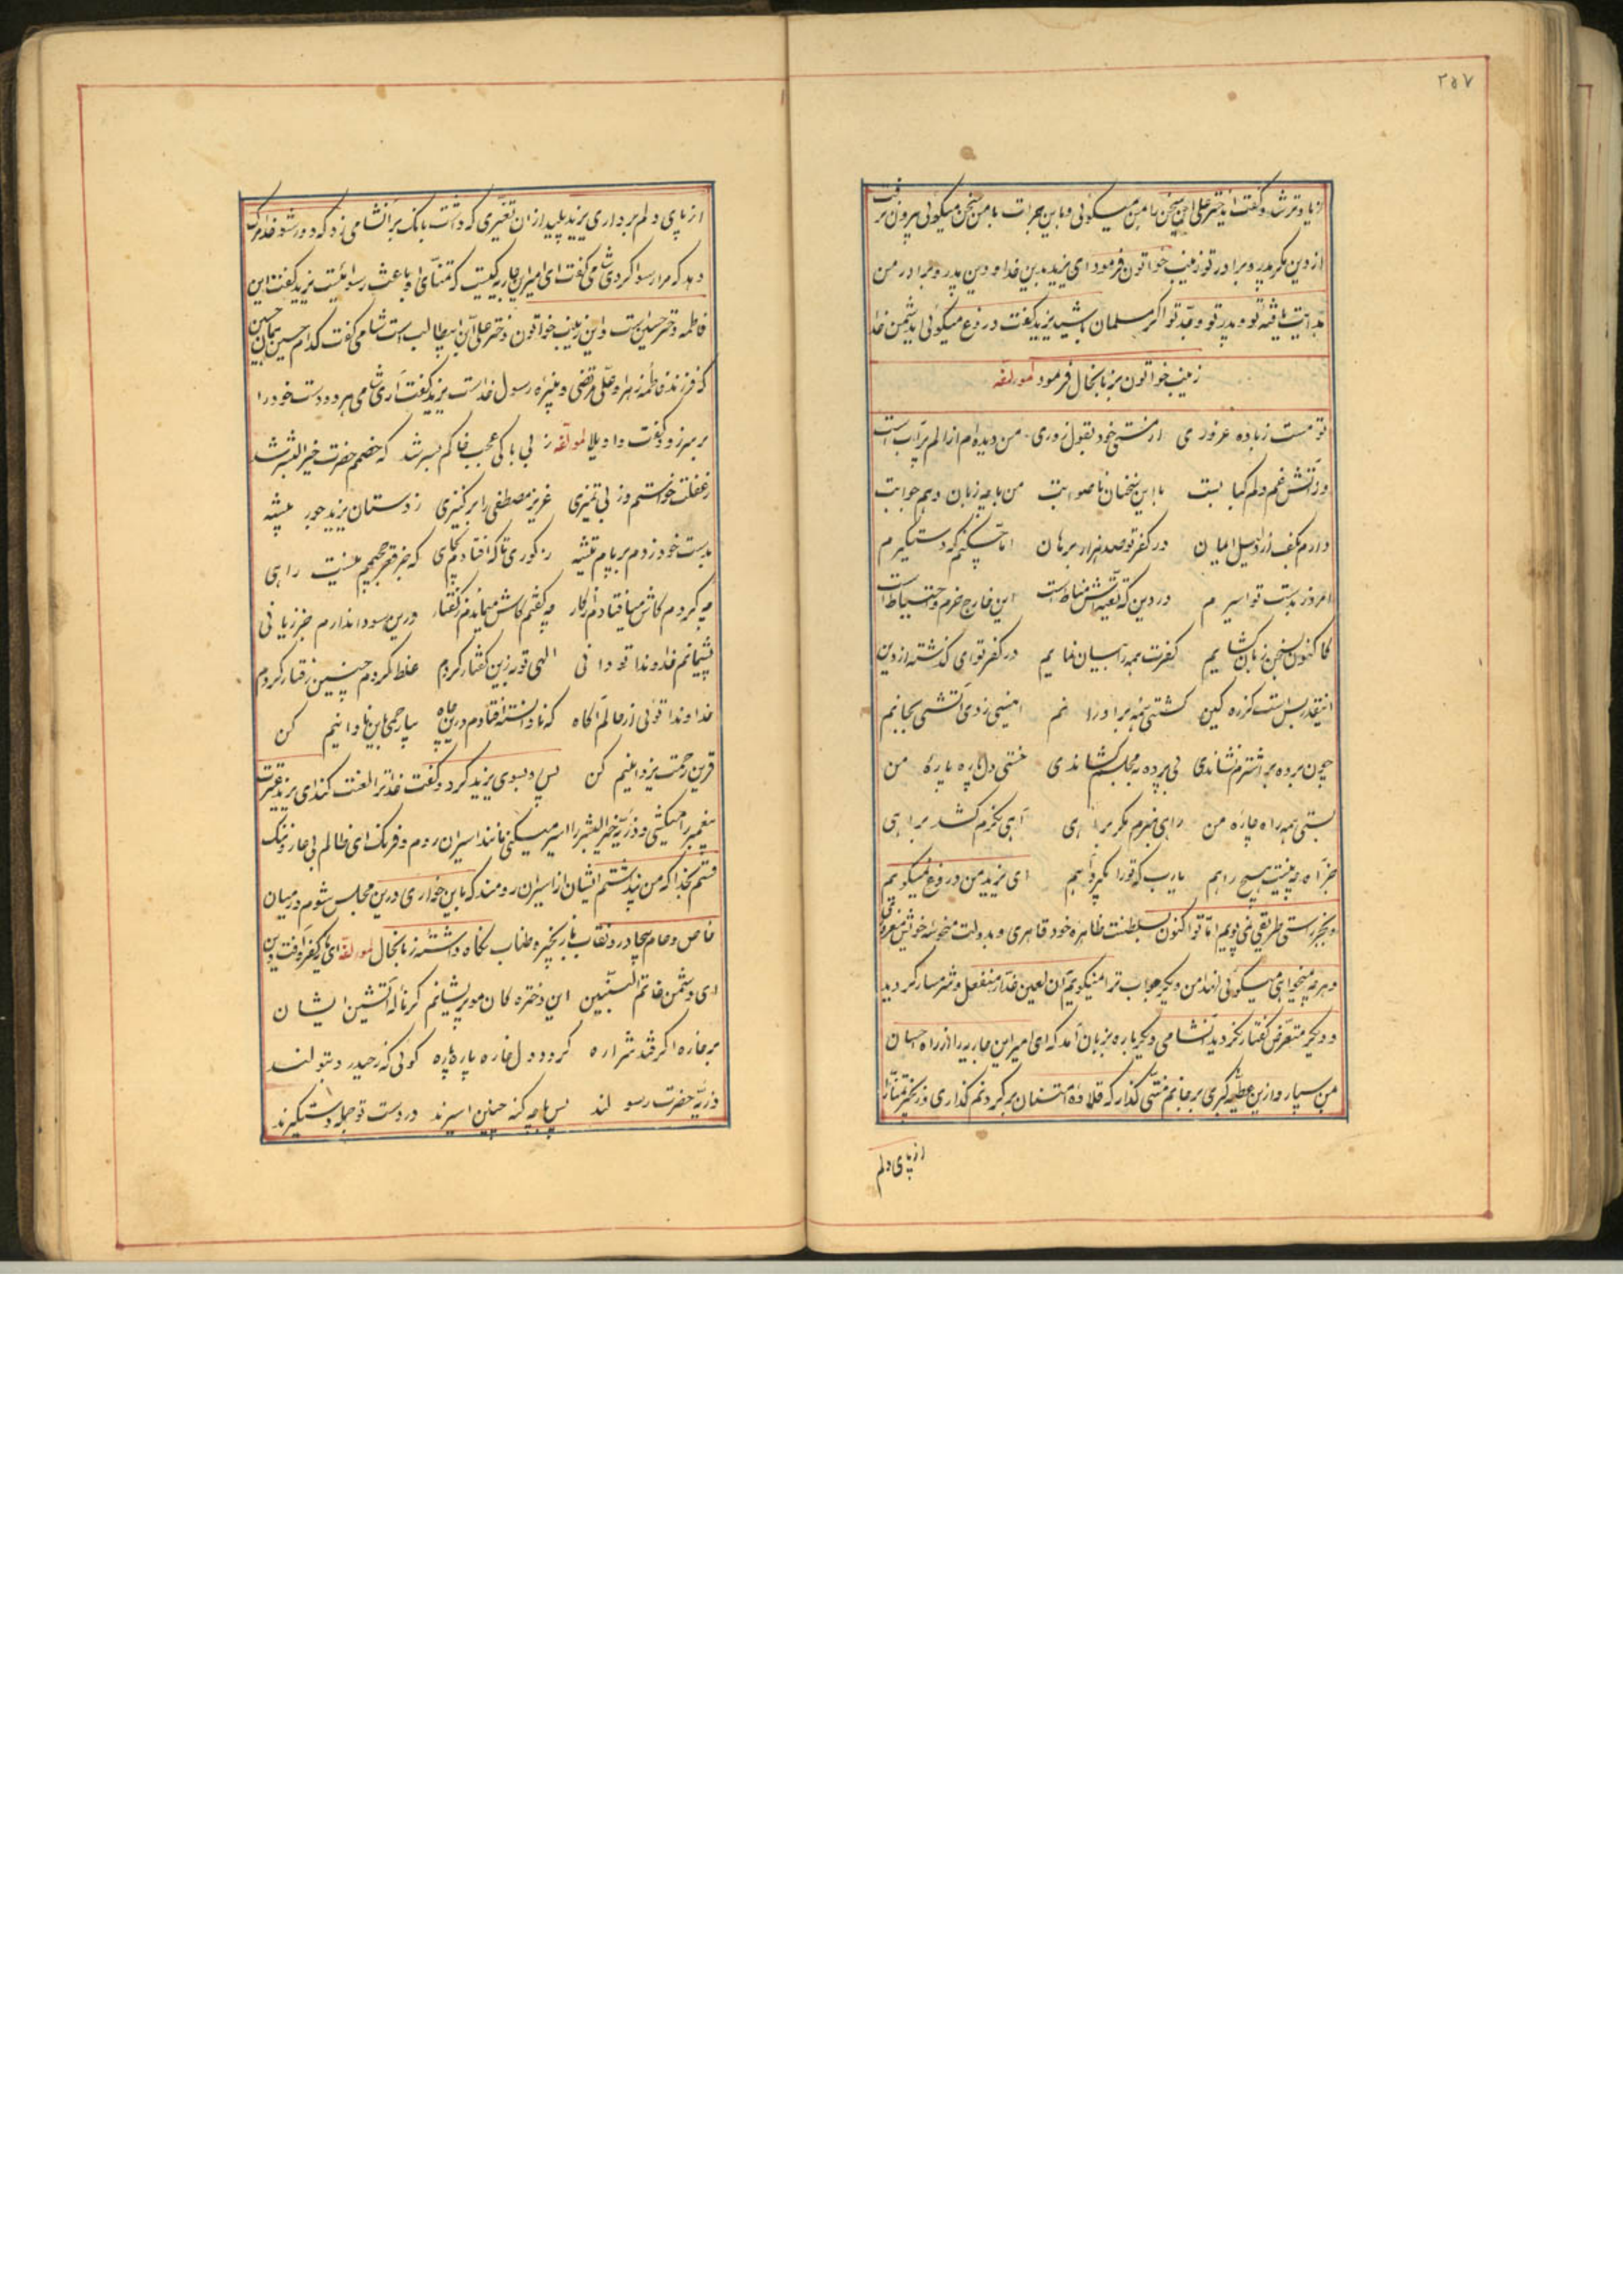 ۲۵۷
زیاد ترش و گفت ایدختر علی این سخن با من میگوئی و باین جرات با من سخن میگوئی بیرون نرفت
از دین مگر پدر و برادر تو زینب خواتون فرمود ای یزید بدین خدا و دین پدر و برادر من
هدایت یافته تو و پدر تو و جد تو اگر مسلمان باشید یزید گفت دروغ میگوئی ایدشمن خدا
زینب خواتون بزبانحال فرمود لمولفه
تو مست زباده غروری از مستی خود بقول زوری من دیده‌ام از الم پر آبست
وز آتش غم دلم کبابست با این سخنان ناصوابت من با چه زبان دهم جوابت
دارم بکف از دلیل ایمان در کفر تو صد هزار برهان اما چکنم که دستگیرم
امروز بدست تو اسیرم در دین که تقیه‌اش مناط است این خارج حزم و احتیاط است
کاکنون بسخن زبان گشایم کفرت همه را بیان نمایم در کفر تو ای گذشته از دین
اینقدر بس است کز ره کین کشتی همه برادرانم زدی آتشی بجانم
چون برده بر اشترم نشاندی بی پرده به مجلسم کشاندی خستی دل پاره پاره من
بستی همه راه چاره من راهی نبرم مگر براهی آهی نکرم کشد براهی
جز آه چو نیست هیچ راهم یارب که تو را نگیرد آهم ای یزید من دروغ نمیگویم
و بجز راستی طریقی نمی پویم اما تو اکنون بسلطنت ظاهره خود قاهری و بدولت خود مغروری
و هر چه میخواهی میگوئی لهذا من دیگر جواب ترا نمیگویم آن لعین غدار منفعل و شرمسار گردید
و دیگر متعرض گفتار نگردید آنشامی دیگر باره بزبان آمد که ای امیر این جاریه را از راه احسان
بمن سپار و ازین عطیه کبری بر جانم منتی گذار که قلاده امتنان بر گردنم گذاری و زنجیر تمنا را
از پای دلم
از پای دلم برداری یزید پلید از ان تغیری که داشت بانگ بر آنشامی زد که دور شو خدا مرگت
دهد که مرا رسوا کردی شامی گفت ای امیر این جاریه کیست که تمنای او باعث رسوائیست یزید گفت این
فاطمه دختر حسین است و این زینب خواتون دختر علی ابن ابیطالب است شامی گفت کدام حسین همان حسین
که فرزند فاطمه زهرا و علی مرتضی و نبیره رسول خداست یزید گفت آری شامی هر دو دست خود را
بر سر زد و گفت واویلا لمولفه ز بی باکی عجب خاکم بسر شد که خصمم حضرت خیر البشر شد
ز غفلت خواستم وز بی تمیزی عزیز مصطفی را بر کنیزی ز دستان یزید جور پیشه
بدست خود زدم بر پام تیشه ز کوری تا که افتادم بچاهی که جز قعر جحیمم نیست راهی
چه کردم کاش میافتادم از کار چه گفتم کاش میماندم ز گفتار درین سودا ندارم جز زیانی
پشیمانم خداوندا تو دانی الهی توبه زین گفتار کردم غلط کردم چنین رفتار کردم
خداوندا توئی از حالم آگاه که نادانسته افتادم درین چاه بیا رحمی باین نادانیم کن
قرین رحمت یزدانیم کن پس رو بسوی یزید کرد و گفت خدا ترا لعنت کند ای یزید عترت
پیغمبر را میکشی و ذریه خیر البشر را اسیر میکنی مانند اسیران روم و فرنگ ای ظالم بی عار و ننگ
قسم بخدا که من پنداشتم ایشان از اسیران رومند که باین خواری درین مجلس شوم در میان
خاص و عام بیچادر و نقاب بزنجیر و طناب نگاه داشته‌اند زبانحال لمولفه ای پای کفر و آفت دین
ای دشمن خاتم النبیین این دخترکان مو پریشانم کز ناله آتشین ایشان
بر خاره اگر فتد شراره گردد دل خاره پاره پاره گوئی که ز حیدر و بتولند
ذریه حضرت رسولند پس با چه گنه چنین اسیرند در دست تو جمله دستگیرند